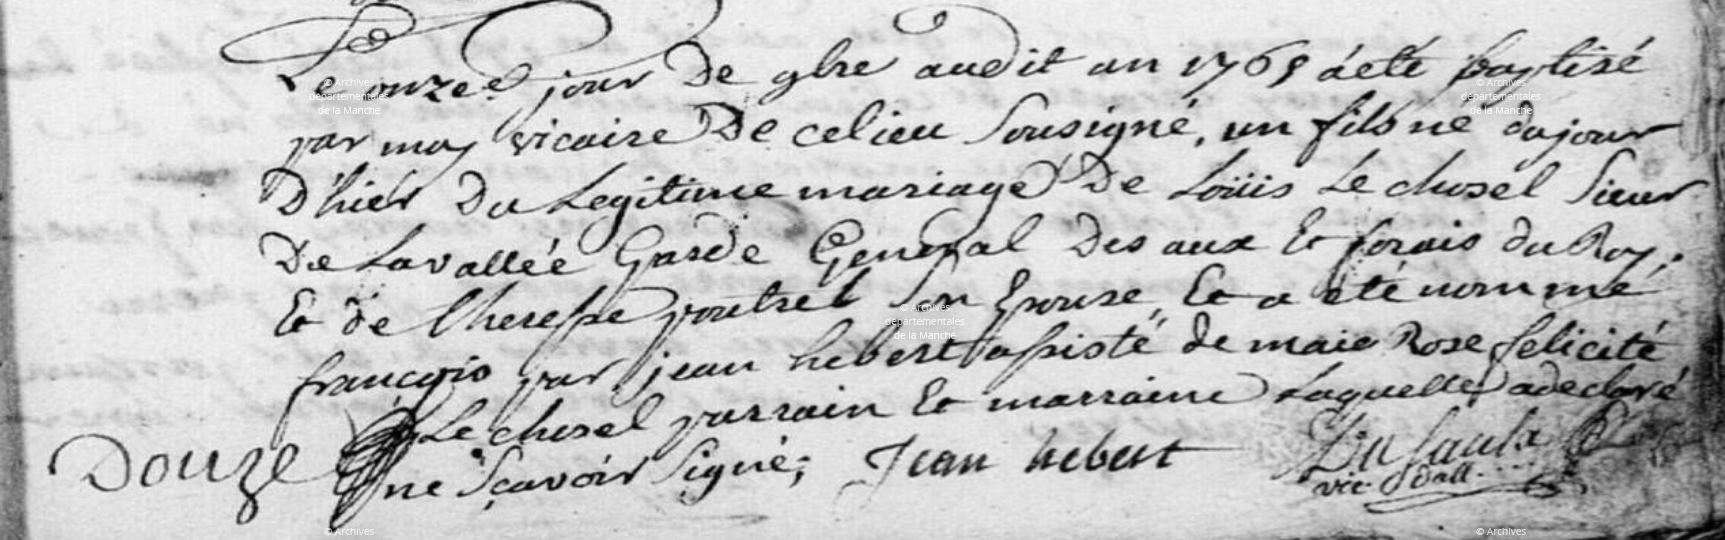 Le onze jour De 9bre audit an 1769 a eté baptisé
par moy vicaire De ce lieu Sousigné, un fils né du jour
D'hier Du Legitime mariage De Loüis Le chosel Sieur
De Lavallée Garde General Des aux Et forais du Roy,
Et de therese poutrel Son Epouse, Et a eté nommé
françois par jean hebert assisté de maie Rose felicité
Le chosel parrain Et marraine Laquelle a declaré
Douze
ne Sçavoir Signé; Jean hebert
vic.
© Archives
départementales
de la Manche
© Archives
départementales
de la Manche
© Archives
départementales
de la Manche
© Archives
© Archives